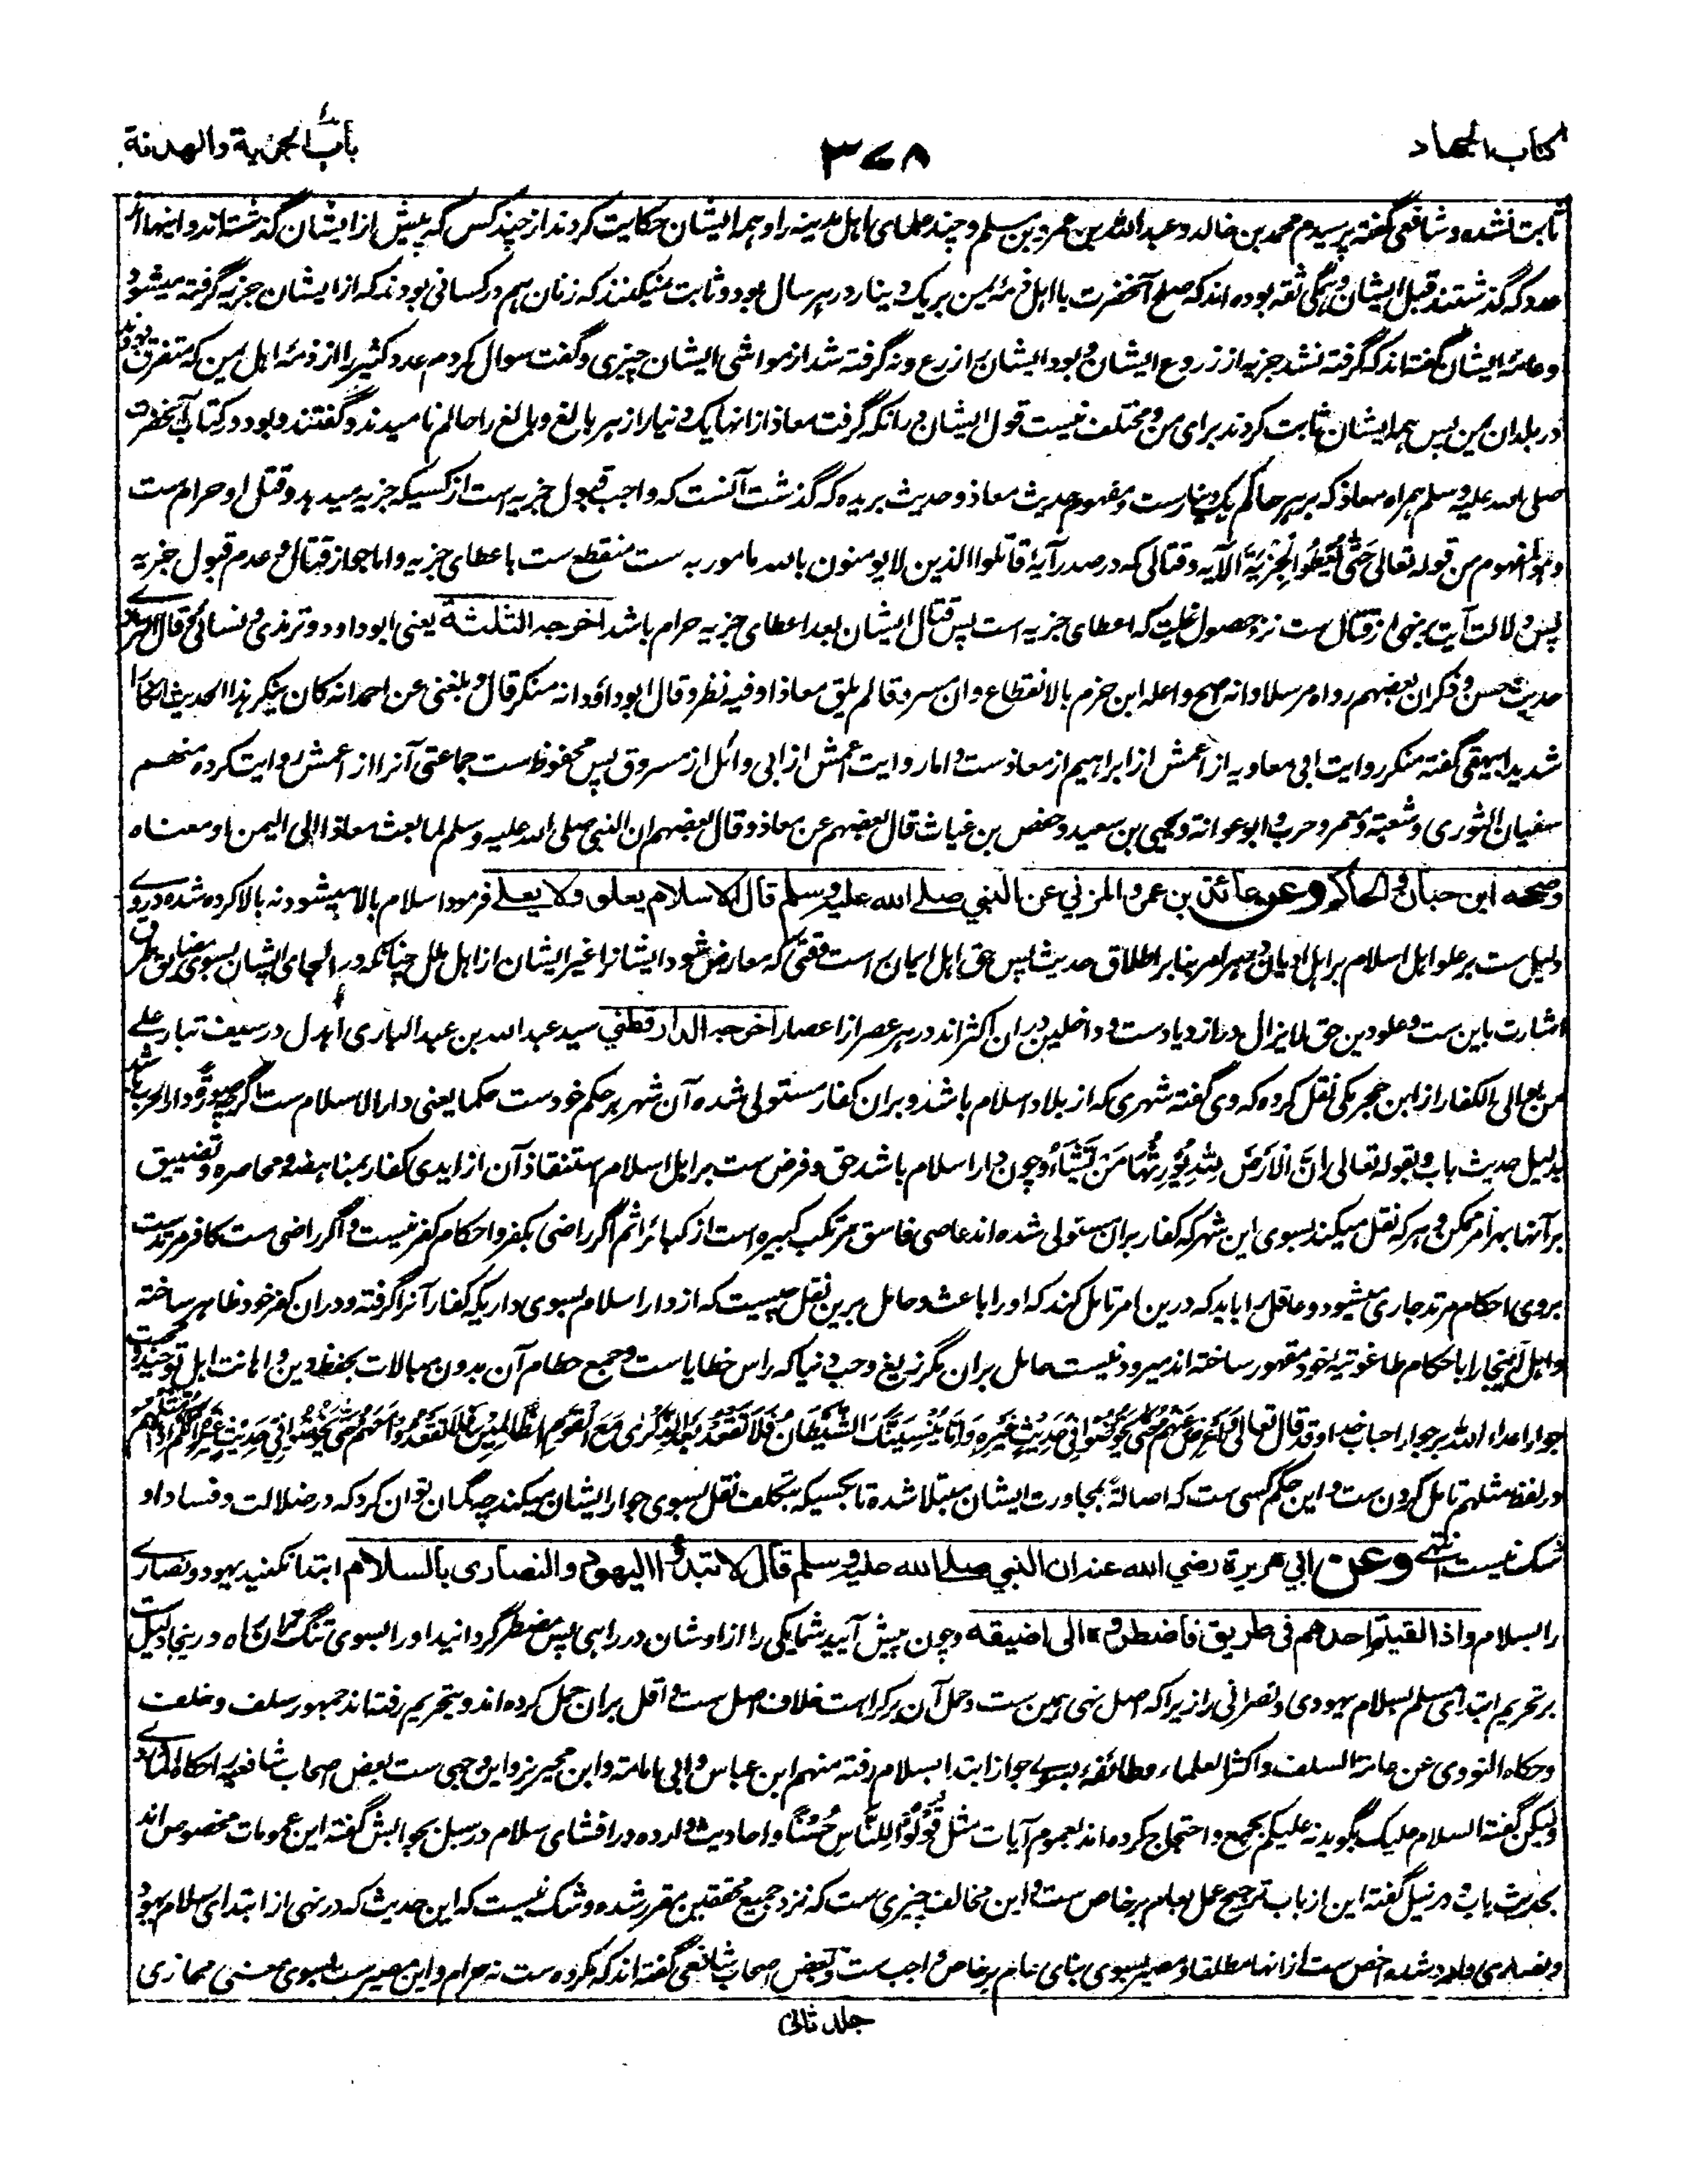 کتاب الجهاد
۳۷۸
باب الجزیة والهدنة
ثابت نشده و شافعی گفته پرسیدم محمد بن خالد و عبد الله بن عمرو بن مسلم و چند علمای اهل مدینه را و همه ایشان حکایت کردند از چند کس که پیش از ایشان گذشته‌اند و اینها از
عدد که گذشتند قبل ایشان و همگی ثقه بوده اند که صلح آنحضرت با اهل ذمهٔ یمن بر یک دینار در هر سال بود و ثابت نمیکنند که زنان هم در کسانی بودند که از ایشان جزیه گرفته میشود
و عامهٔ ایشان گفته اند که گرفته نشد جزیه از زروع ایشان و بود ایشان را زرع و نه گرفته شد از مواشی ایشان چیزی و گفت سوال کردم عدد کثیر را از ذمهٔ اهل یمن که متفرق بودند
در بلدان یمن پس همه ایشان ثابت کردند برای من و مختلف نیست قول ایشان در آنکه گرفت معاذ از انها یک دینار از هر بالغ و بالغ را حالم نامیدند و گفتند و بود در کتاب آنحضرت
صلی الله علیه وسلم همراه معاذ که بر هر حالم یک دینارست و مفهوم حدیث معاذ و حدیث بریده که گذشت آنست که واجب قبول جزیه است از کسیکه جزیه میدهد و قتل او حرام ست
و هو المفهوم من قوله تعالی حَتَّی یُعْطُوا الْجِزْیَةَ الآیه و قتالی که در صدر آیهٔ قاتلوا الذین لا یومنون بالله مامور به ست منقطع ست باعطای جزیه و اما جواز قتال و عدم قبول جزیه
پس دلالت آیت بر نهی از قتال ست نزد حصول غایت که اعطای جزیه است پس قتال ایشان بعد اعطای جزیه حرام باشد اخرجه الثلثة یعنی ابوداود و ترمذی و نسائی و قال الترمذی
حدیث حسن و ذکر ان بعضهم رواه مرسلا و انه اصح و اعله ابن حزم بالانقطاع و ان مسروقا لم یلق معاذا و فیه نظر و قال ابوداؤد انه منکر قال و بلغنی عن احمد انه کان ینکر هذا الحدیث انکارا
شدیدا بیهقی گفته منکر روایت ابی معاویه از اعمش از ابراهیم از معاذست و اما روایت اعمش از ابی وائل از مسروق پس محفوظ ست جماعتی آنرا از اعمش روایت کرده منهم
سفیان الثوری و شعبة و معمر و حرب و ابو عوانة و یحیی بن سعید و حفص بن غیاث قال بعضهم عن معاذ و قال بعضهم ان النبی صلی الله علیه وسلم لما بعث معاذا الی الیمن او معناه
وصححه ابن حبان والحاکم وعن عائذ بن عمرو المزني عن النبي صلے الله علیه وسلم قال الاسلام یعلو ولا یعلے فرمود اسلام بالا میشود نه بالا کرده شده در وے
دلیل ست بر علو اهل اسلام بر اهل ادیان در هر امر بنا بر اطلاق حدیث پس حق اهل ایمان راست وقتی که معارض شود ایشانرا غیر ایشان از اهل ملل چنانکه در الجای ایشان بسوی مضایق طرق
اشارت باین ست و علو دین حق لا یزال در ازدیادست و داخلین در ان اکثر اند در هر عصر از اعصار اخرجه الدارقطني سید عبدالله بن عبدالباری اهدل در سیف تبار علے
من یوالی الکفار از ابن حجر مکی نقل کرده که وی گفته شهری که از بلاد اسلام باشد و بران کفار مستولی شده آن شهر بر حکم خودست حکما یعنی دار الاسلام ست اگرچه صورةً دار الحرب باشد
بدلیل حدیث باب و بقوله تعالی اِنَّ الْاَرْضَ لِلّٰهِ یُوْرِثُهَا مَنْ یَّشَآءُ و چون دار اسلام باشد حق و فرض ست بر اهل اسلام استنقاذ آن از ایدی کفار بمناهضه و محاصره و تضییق
بر آنها بهر امر ممکن و هر که نقل میکند بسوی این شهر که کفار بران مستولی شده اند عاصی فاسق مرتکب کبیره است از کبائر اثم اگر راضی بکفر و احکام کفر نیست و اگر راضی ست کافر مرتدست
بروی احکام مرتد جاری میشود و عاقل را باید که درین امر تامل کند که او را باعث و حامل برین نقل چیست که از دار اسلام بسوی داریکه کفار آنرا گرفته و دران کفر خود ظاهر ساخته
و اهل آنجا را باحکام طاغوتیه خود مقهور ساخته اند میرود نیست حامل بران مگر زیغ و حب دنیا که راس خطایاست و جمع حطام آن بدون مبالات بحفظ دین و اهانت اهل توحید و محبت
جوار اعداء الله بر جوار احباب خدا و قد قال تعالی فَاَعْرِضْ عَنْهُمْ حَتّٰی یَخُوْضُوْا فِیْ حَدِیْثٍ غَیْرِهٖ وَاِمَّا یُنْسِیَنَّکَ الشَّیْطَانُ فَلَا تَقْعُدْ بَعْدَ الذِّکْرٰی مَعَ الْقَوْمِ الظَّالِمِیْنَ فَلَا تَقْعُدُوْا مَعَهُمْ حَتّٰی یَخُوْضُوْا فِیْ حَدِیْثٍ غَیْرِهٖ اِنَّکُمْ اِذًا مِّثْلُهُمْ
در لفظ مثلهم تامل کردن ست و این حکم کسی ست که اصالةً بمجاورت ایشان مبتلا شده تا بکسیکه بتکلف نقل بسوی جوار ایشان میکند چه گمان توان کرد که در ضلالت و فساد او
شک نیست انتهی وعن ابي هریرة رضي الله عنه ان النبي صلے الله علیه وسلم قال لا تبدؤا الیهود والنصاری بالسلام ابتدا نکنید یهود و نصارے
را بسلام واذا لقیتم احدهم فی طریق فاضطروه الی اضیقه و چون پیش آیید شما یکی را از اوشان در راهی پس مضطر گردانید او را بسوی تنگ تر ان راه درینجا دلیل ست
بر تحریم ابتدای مسلم بسلام یهودی و نصرانی را زیرا که اصل نهی همین ست و حمل آن بر کراهت خلاف اصل ست و اقل بران حمل کرده اند و بتحریم رفته اند جمهور سلف و خلف
و حکاه النووی عن عامة السلف و اکثر العلماء و طائفهٔ بسوے جواز ابتدا بسلام رفته منهم ابن عباس و ابی امامة و ابن محیریز و این وجهی ست بعض اصحاب شافعیه را حکاه الماوردی
ولیکن گفته السلام علیک بگوید نه علیکم بجمع و احتجاج کرده اند بعموم آیات مثل قُوْلُوْا لِلنَّاسِ حُسْنًا و احادیث وارده در افشای سلام در سبل بجوابش گفته این عمومات مخصوص اند
بحدیث باب و در نیل گفته این از باب ترجیح عمل بعام بر خاص ست و این مخالف چیزی ست که نزد جمیع محققین مقرر شده و شک نیست که این حدیث که در نهی از ابتدای سلام یهود
و نصاری وارد شده اخص ست از انها مطلقا و مصیر بسوی بنای عام بر خاص واجب ست و بعض اصحاب شافعی گفته اند که مکروه ست نه حرام و این مصیر ست بسوی معنی مجازی
جلد ثانی